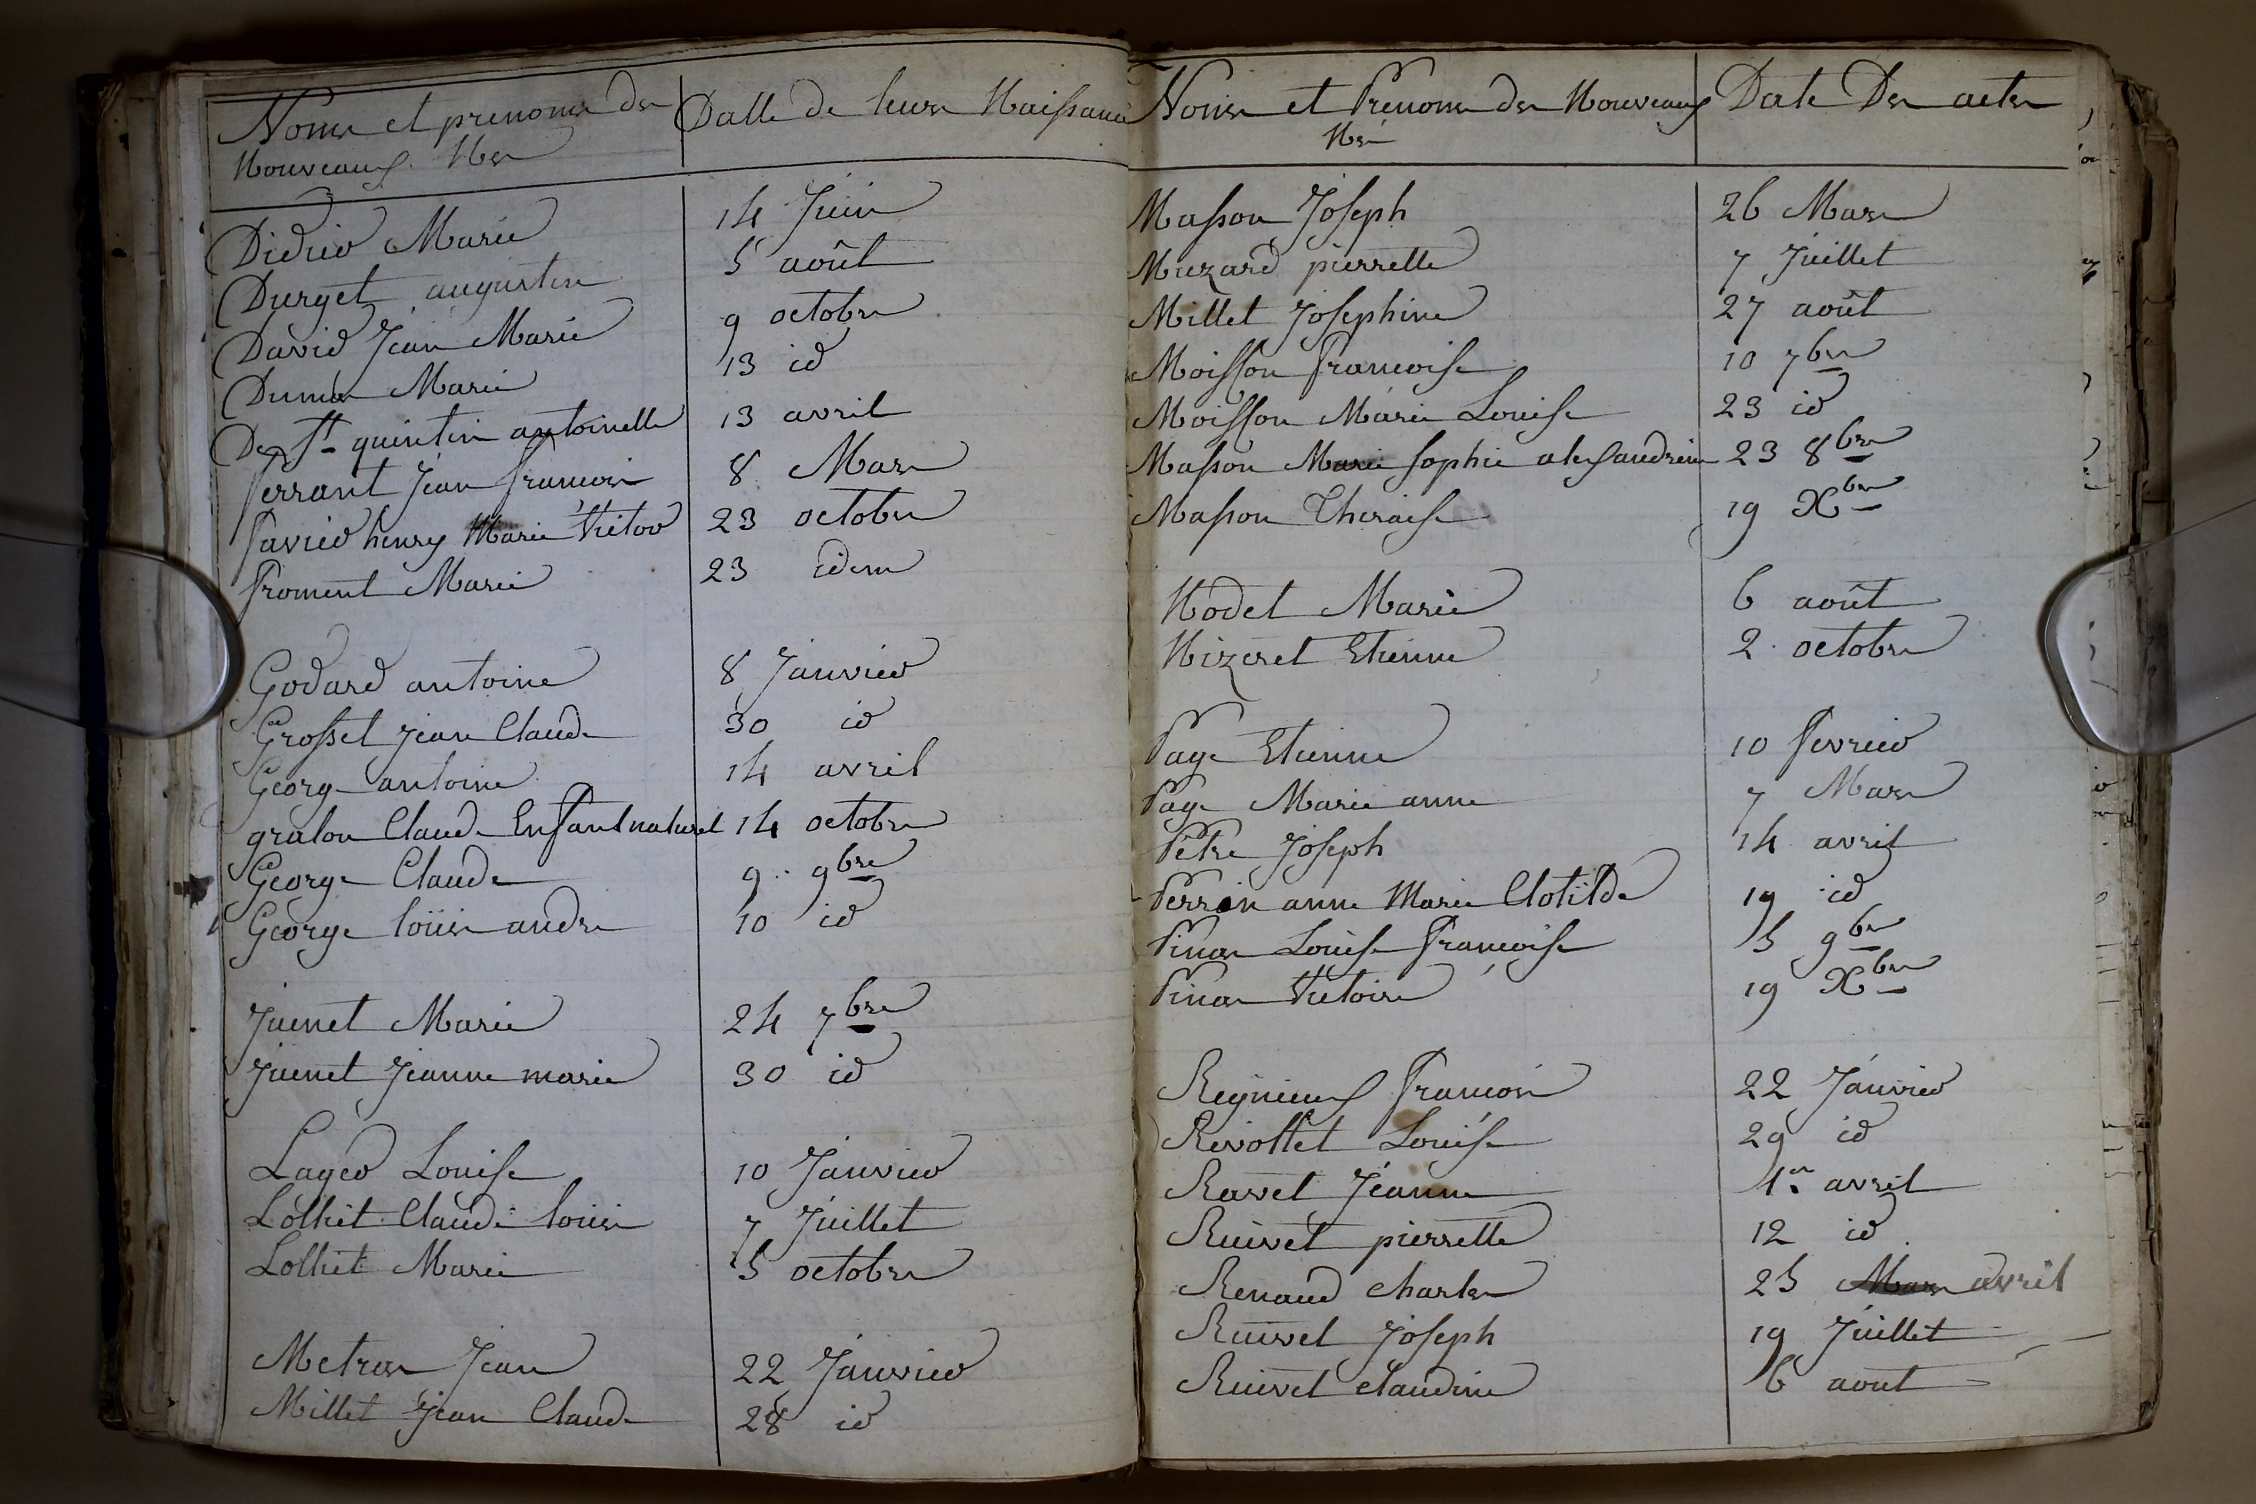 Noms et prenoms des Datte de leurs Naissance
Nouveaux Nes
Didier Marie 14 Juin
Durget augustin 5 août
David Jean Marie 9 octobre
Dumas Marie 13 id
De St quintin antoinette 13 avril
ferrant Jean francois 8 Mars
favier henry Marie Victor 23 octobre
froment Marie 23 idem
Godard antoine 8 Janvier
Grosset Jean Claude 30 id
George antoine 14 avril
gralon Claude Enfant naturel 14 octobre
George Claude 9 9bre
George loüis andre 10 id
Juenet Marie 24 7bre
Juenet Jeanne marie 30 id
Lager Louise 10 Janvier
Lolhet Claude louis 7 Juillet
Lolhet Marie 5 octobre
Metras Jean 22 Janvier
Millet Jean Claude 28 id
Noms et Prenoms des Nouveaux Date Des actes
Nés
Masson Joseph 26 Mars
Muzard pierrette 7 Juillet
Millet Josephine 27 août
Moisson francoise 10 7bre
Moisson Marie Louise 23 id
Masson Marie sophie alexandrine 23 8bre
Masson Theraise 19 Xbre
Nodet Marie 6 août
Nizeret Etienne 2 octobre
Page Etienne 10 fevrier
Page Marie anne 7 Mars
Petre Joseph 14 avril
Perrin anne Marie Clotilde 19 id
Pinas Louise francoise 5 9bre
Pinas Victoire 19 Xbre
Regnieux francois 22 Janvier
Revollet Louise 29 id
Ravet Jeanne 1er avril
Ruivet pierrette 12 id
Renaud charles 25 Mars avril
Ruivet Joseph 19 Juillet
Ruivet claudine 6 aout